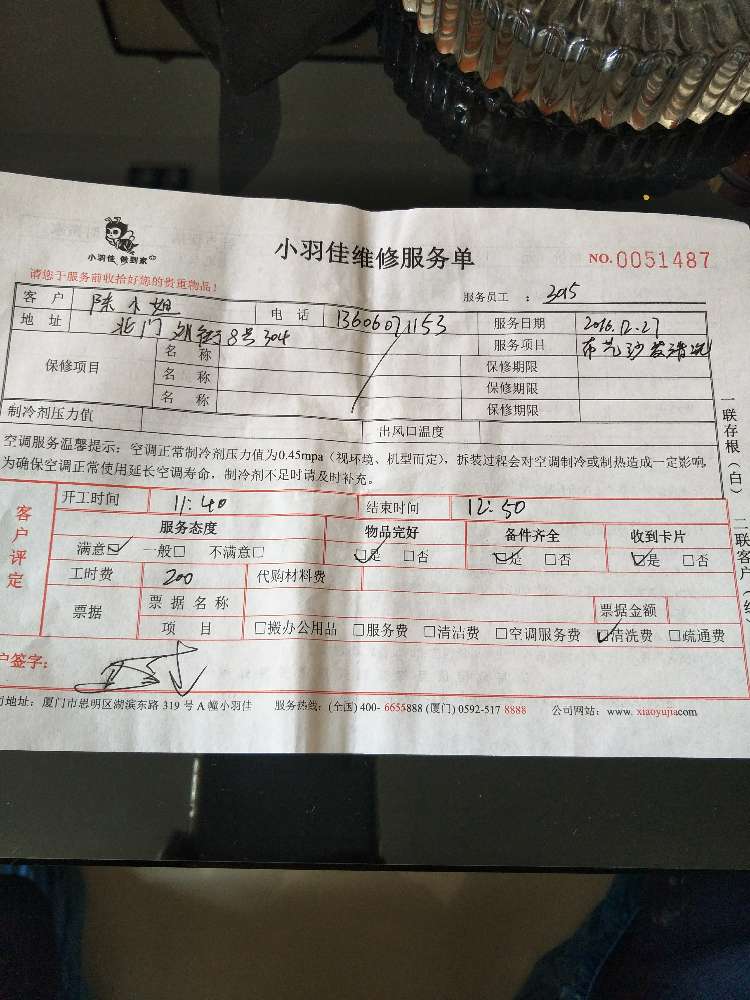 小羽佳 做到家
小羽佳维修服务单
NO.0051487
请您于服务前收拾好您的贵重物品!
服务员工 : 3015
客 户 陈小姐 电 话 13606071153 服务日期 2016.12.27
地 址 北门 8号304 服务项目 布艺沙发清洗
保修项目 名 称 保修期限
名 称 保修期限
名 称 保修期限
制冷剂压力值 出风口温度
空调服务温馨提示:空调正常制冷剂压力值为0.45mpa(视环境、机型而定),拆装过程会对空调制冷或制热造成一定影响,
为确保空调正常使用延长空调寿命,制冷剂不足时请及时补充。
客户评定
开工时间 11:40 结束时间 12:50
服务态度 物品完好 备件齐全 收到卡片
满意☑ 一般□ 不满意□ ☑是 □否 ☑是 □否 ☑是 □否
工时费 200 代购材料费
票据 票 据 名 称 票据金额
项 目 □搬办公用品 □服务费 □清洁费 □空调服务费 ☑清洗费 □疏通费
户签字:
司地址:厦门市思明区湖滨东路 319 号 A 幢小羽佳 服务热线:(全国) 400- 6655888 (厦门) 0592-517 8888 公司网站:www. xiaoyujiacom
一联存根(白)
二联客户(红